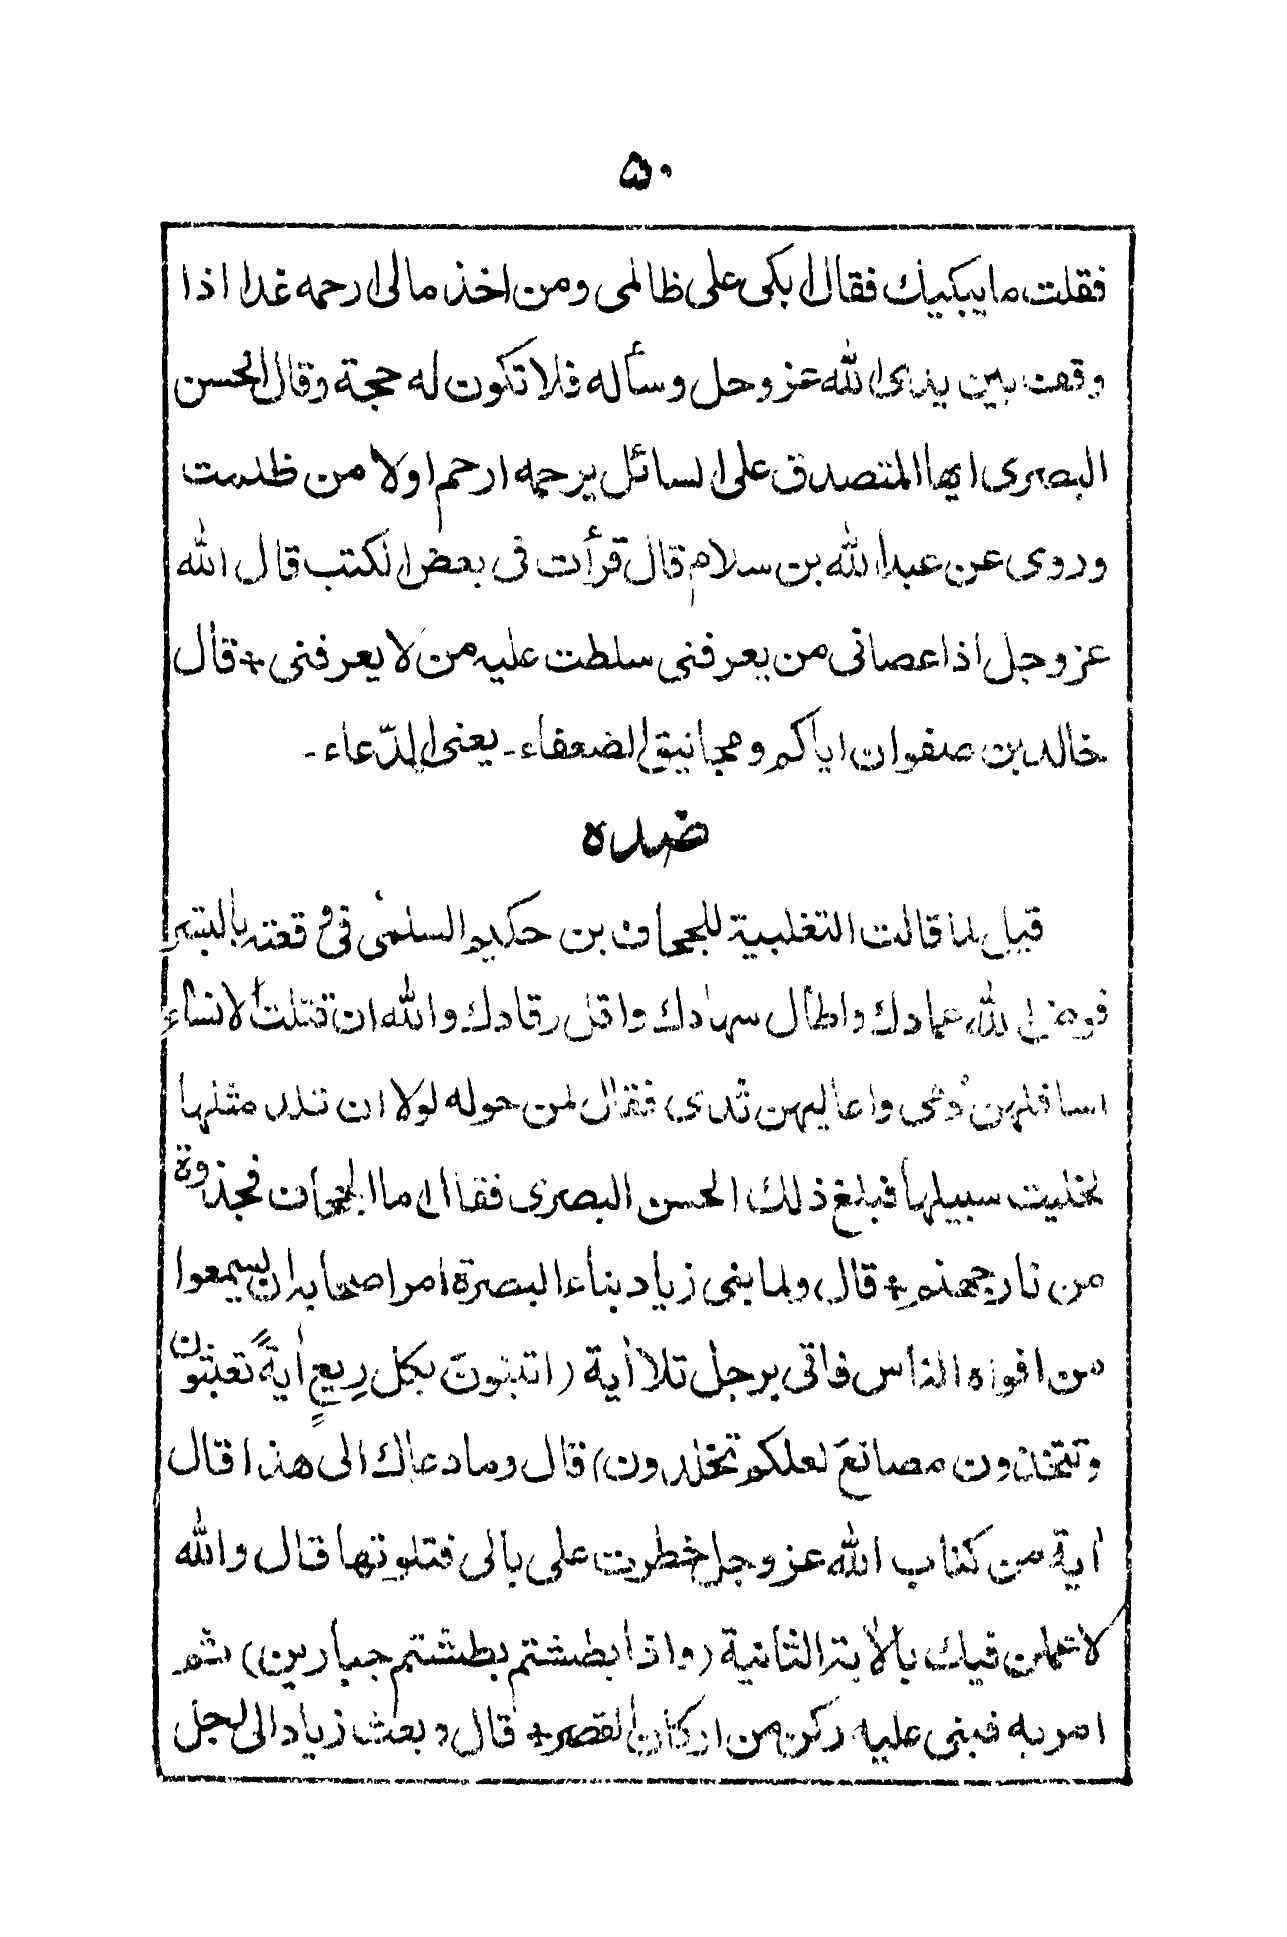 ۵۰
فقلت ما يبكيك فقال ابكى على ظالمى ومن اخذ مالى ارحمه غدا اذا
وقف بين يدى الله عز وجل وسأله فلا تكون له حجة وقال الحسن
البصرى ايها المتصدق على السائل يرحمه ارحم اولا من ظلمت
وروى عن عبد الله بن سلام قال قرأت فى بعض الكتب قال الله
عز وجل اذا عصانى من يعرفنى سلطت عليه من لا يعرفنى + قال
خالد بن صفوان اياكم ومجانيق الضعفاء - يعنى الدّعاء -
ضده
قيل لما قالت التغلبية للجحاف بن حكيم السلمى فى وقعته بالبشر
فوض الله عمادك واطال سهادك واقل رقادك والله ان قتلت الا نساء
اسافلهن دُمى واعاليهن ثدى فقال لمن حوله لولا ان تلد مثلها
لخليت سبيلها فبلغ ذلك الحسن البصرى فقال اما الجحاف فجذوة
من نار جهنم + قال ولما بنى زياد بناء البصرة امر اصحابه ان يسمعوا
من افواه الناس فاتى برجل تلا أية (اتبنون بكل رِيعٍ أيةً تعبثون
وتتخذون مصانعَ لعلكم تخلدون) قال وما دعاك الى هذا قال
أية من كتاب الله عز وجل خطرت على بالى فتلوتها قال والله
لاعملن فيك بالأية الثانية (واذا بطشتم بطشتم جبارين) ثم
امر به فبنى عليه ركن من اركان القصر + قال وبعث زياد الى رجل